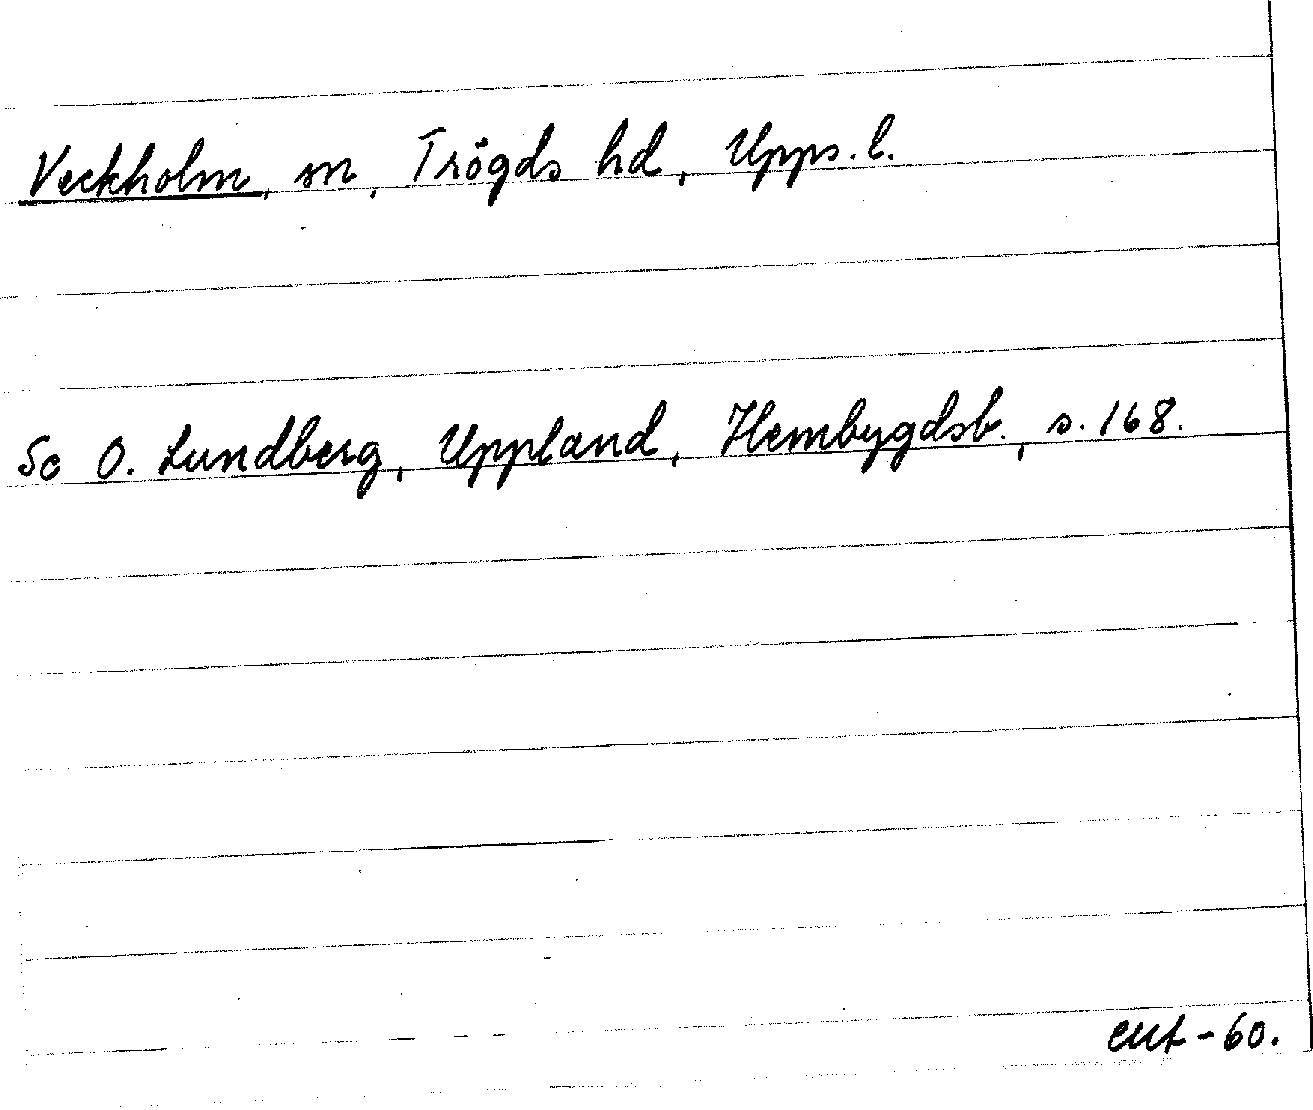 Veckholm, sn, Trögds hd, Upps. l.
Se O. Lundberg, Uppland, Hembygdsb., s. 168.
-60.